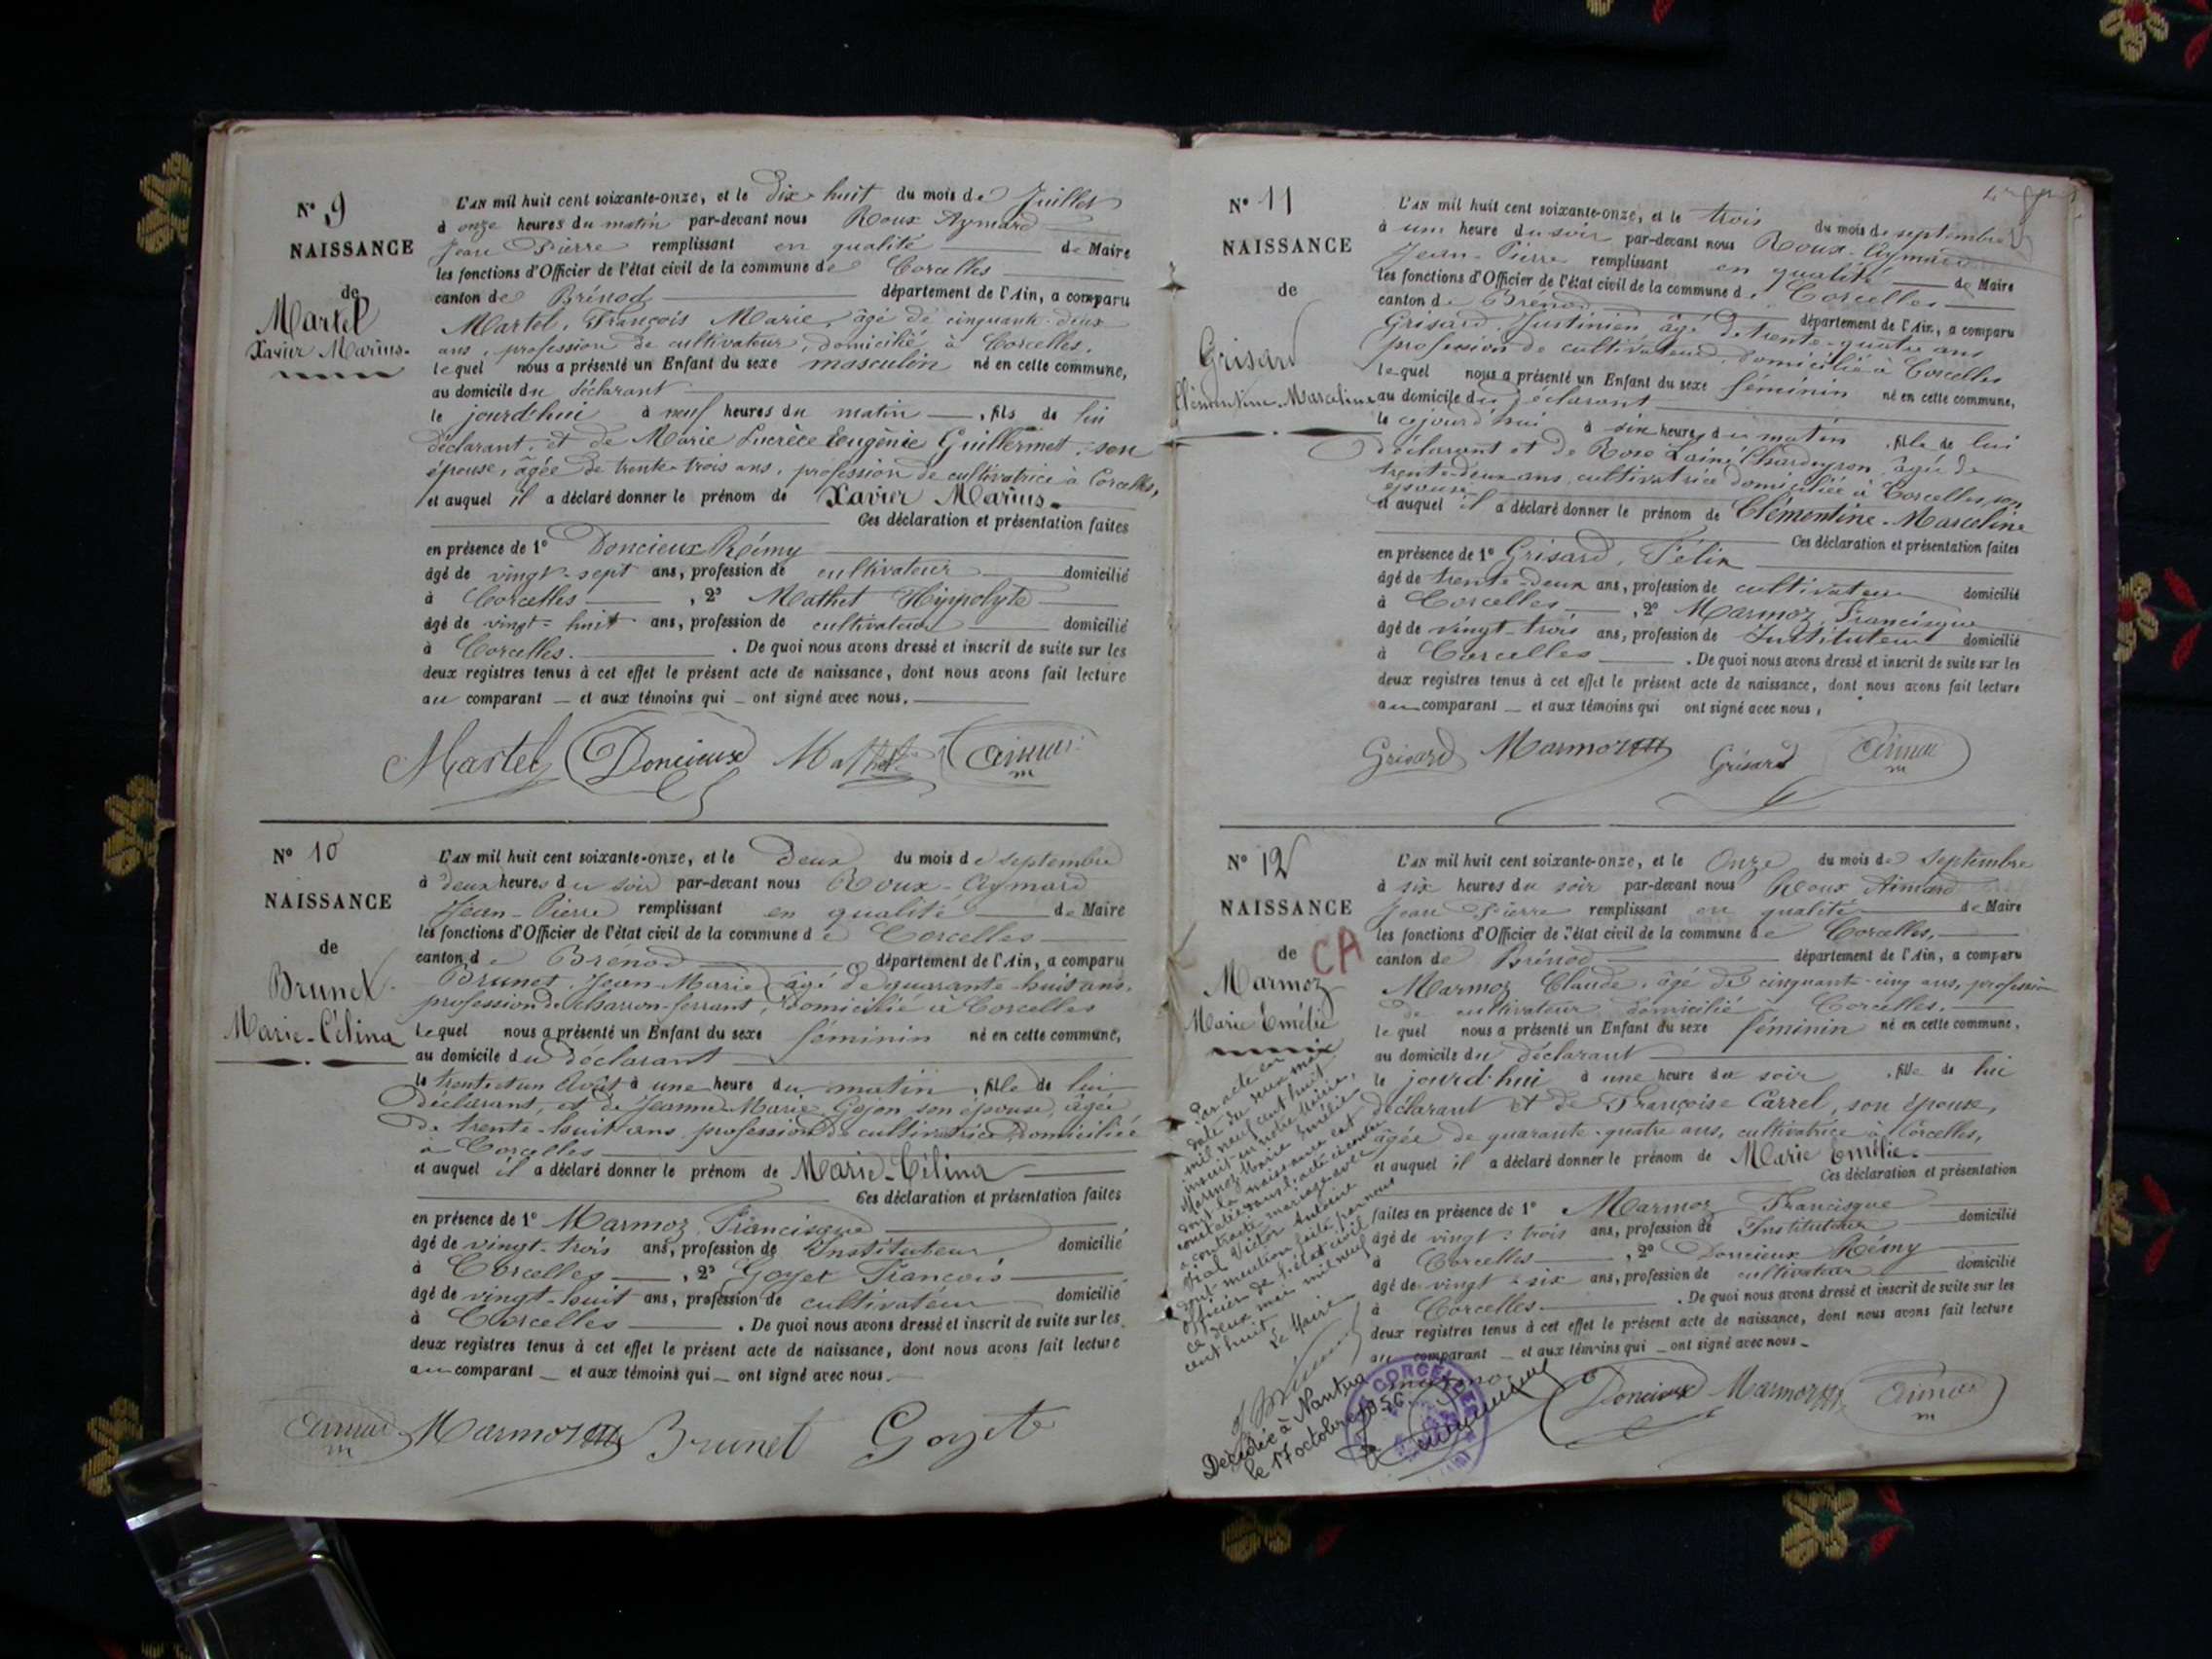 N° 9
NAISSANCE
de
Martel
Xavier Marius.
L'AN mil huit cent soixante-onze, et le Dix-huit du mois de Juillet
à onze heures du matin par-devant nous Roux Aymard
Jean Pierre remplissant en qualité de Maire
les fonctions d'Officier de l'état civil de la commune de Corcelles
canton de Brénod département de l'Ain, a comparu
Martel, François Marie, âgé de cinquante-deux
ans, profession de cultivateur, domicilié à Corcelles.
lequel nous a présenté un Enfant du sexe masculin né en cette commune,
au domicile du déclarant
le jourd'hui à neuf heures du matin, fils de lui
déclarant, et de Marie Lucrèce Eugénie Guillermet, son
épouse, âgée de trente-trois ans, profession de cultivatrice à Corcelles,
et auquel il a déclaré donner le prénom de Xavier Marius.
Ces déclaration et présentation faites
en présence de 1° Doncieux Rémy
âgé de vingt-sept ans, profession de cultivateur domicilié
à Corcelles, 2° Mathet Hyppolyte
âgé de vingt-huit ans, profession de cultivateur domicilié
à Corcelles. . De quoi nous avons dressé et inscrit de suite sur les
deux registres tenus à cet effet le présent acte de naissance, dont nous avons fait lecture
au comparant et aux témoins qui ont signé avec nous.
Martel Doncieux Mathet Aimard
N° 10
NAISSANCE
de
Brunet
Marie-Célina
L'AN mil huit cent soixante-onze, et le Deux du mois de septembre
à deux heures du soir par-devant nous Roux-Aymard
Jean-Pierre remplissant en qualité de Maire
les fonctions d'Officier de l'état civil de la commune de Corcelles
canton de Brénod département de l'Ain, a comparu
Brunet, Jean-Marie âgé de quarante-huit ans,
profession de charron-ferrant, domicilié à Corcelles
lequel nous a présenté un Enfant du sexe féminin né en cette commune,
au domicile du déclarant
le trente et un Août à une heure du matin, fille de lui
déclarant, et de Jeanne-Marie Goyon son épouse, âgée
de trente-huit ans profession de cultivatrice domiciliée
à Corcelles
et auquel il a déclaré donner le prénom de Marie-Célina
Ces déclaration et présentation faites
en présence de 1° Marmoz, Francisque
âgé de vingt-trois ans, profession de Instituteur domicilié
à Corcelles, 2° Goyet François
âgé de vingt-huit ans, profession de cultivateur domicilié
à Corcelles . De quoi nous avons dressé et inscrit de suite sur les
deux registres tenus à cet effet le présent acte de naissance, dont nous avons fait lecture
au comparant et aux témoins qui ont signé avec nous.
Aimard Marmoz Brunet Goyet
N° 11
NAISSANCE
de
Grisard
Clémentine-Marceline
L'AN mil huit cent soixante-onze, et le trois du mois de septembre
à une heure du soir par-devant nous Roux-Aymard
Jean-Pierre remplissant en qualité de Maire
les fonctions d'Officier de l'état civil de la commune de Corcelles
canton de Brénod département de l'Ain, a comparu
Grisard, Justinien, âgé de trente-quatre ans
profession de cultivateur, domicilié à Corcelles
lequel nous a présenté un Enfant du sexe féminin né en cette commune,
au domicile du déclarant
le cejourd'hui à six heures du matin, fille de lui
déclarant et de Rose âgée de
trente-deux ans, cultivatrice domiciliée à Corcelles, son
épouse
et auquel il a déclaré donner le prénom de Clémentine-Marceline
Ces déclaration et présentation faites
en présence de 1° Grisard, Félix
âgé de trente-deux ans, profession de cultivateur domicilié
à Corcelles, 2° Marmoz, Francisque
âgé de vingt-trois ans, profession de Instituteur domicilié
à Corcelles . De quoi nous avons dressé et inscrit de suite sur les
deux registres tenus à cet effet le présent acte de naissance, dont nous avons fait lecture
au comparant et aux témoins qui ont signé avec nous,
Grisard Marmoz Grisard Aimard
N° 12
NAISSANCE
de CA
Marmoz
Marie Emélie
Par acte en
date du deux mai
mil neuf cent huit
inscrit en notre Mairie,
Marmoz Marie Emélie
dont la naissance est
constatée dans l'acte ci-contre
a contracté mariage avec
Vial Victor Antoine
dont mention faite par nous
officier de l'état civil
ce deux mai mil neuf
cent huit
Le Maire
Décédée à Nantua
le 17 octobre 1956.
L'AN mil huit cent soixante-onze, et le Onze du mois de Septembre
à six heures du soir par-devant nous Roux Aimard
Jean Pierre remplissant en qualité de Maire
les fonctions d'Officier de l'état civil de la commune de Corcelles,
canton de Brénod département de l'Ain, a comparu
Marmoz Claude, âgé de cinquante-cinq ans, profession
de cultivateur domicilié à Corcelles.
lequel nous a présenté un Enfant du sexe féminin né en cette commune,
au domicile du déclarant
le jourd'hui à une heure du soir, fille de lui
déclarant et de Françoise Carrel, son épouse,
âgée de quarante-quatre ans, cultivatrice à Corcelles,
et auquel il a déclaré donner le prénom de Marie Emélie.
Ces déclaration et présentation
faites en présence de 1° Marmoz Francisque
âgé de vingt-trois ans, profession de Instituteur domicilié
à Corcelles, 2° Doncieux Rémy
âgé de vingt-six ans, profession de cultivateur domicilié
à Corcelles. . De quoi nous avons dressé et inscrit de suite sur les
deux registres tenus à cet effet le présent acte de naissance, dont nous avons fait lecture
au comparant et aux témoins qui ont signé avec nous
Doncieux Marmoz Aimard